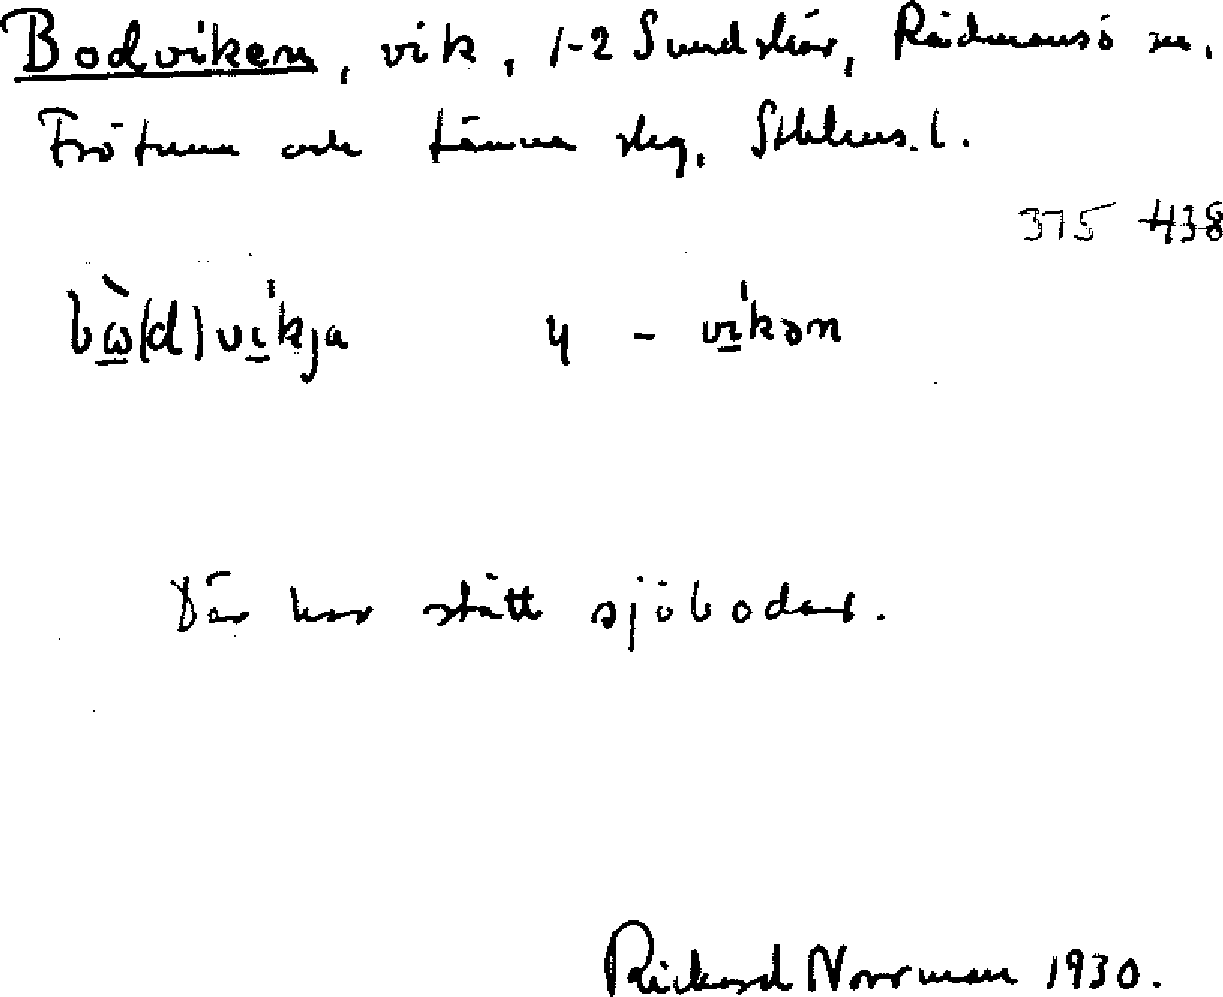 Bodviken, vik, 1-2 Sundskär, Rådmansö sn.
Frötuna och Länna skg, Sthlms.l.
375 438
bὼ(d)vi̱kja 4 - vi̱kən
Där har stått sjöbodar.
Rickard Norrman 1930.